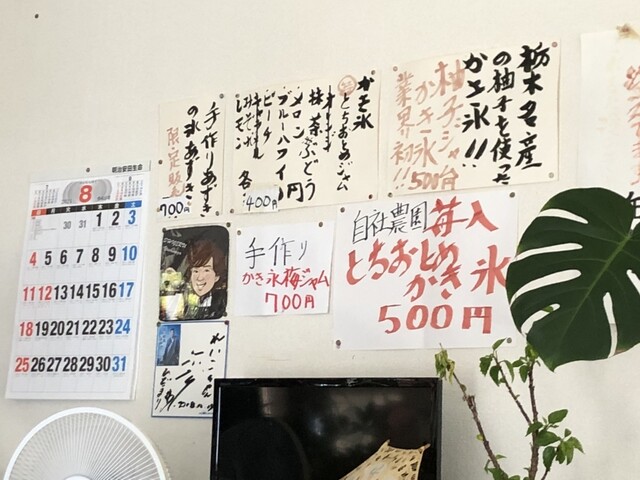 明治安田生命
8
日 月 火 水 木 金 土
30 31 1 2 3
4 5 6 7 8 9 10
11 12 13 14 15 16 17
18 19 20 21 22 23 24
25 26 27 28 29 30 31
手作りあずき
の氷あずき
限定販売
700円
かき氷
とちおとめジャム
抹茶ぶどう
メロン
ブルーハワイ
ピーチ
みぞれ
レモン 各
400円
栃木名産
の柚子を使った
かき氷!!
柚子ジャム
かき氷500円
業界初!!
手作り
かき氷梅ジャム
700円
自社農園苺入
とちおとめ
かき氷
500円